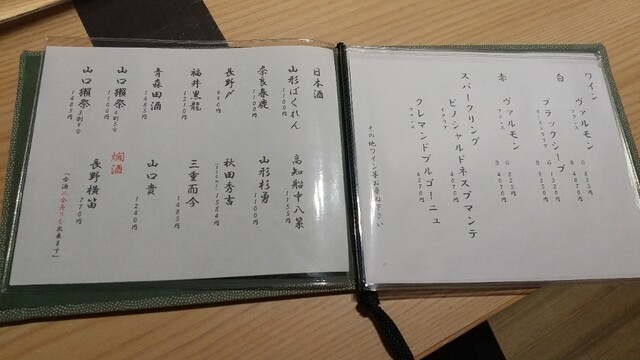 日本酒
山形ばくれん
1100円
高知船中八策
1155円
奈良春鹿
1100円
山形杉勇
1100円
長野〆
990円
秋田秀吉
1584円
福井黒龍
1210円
三重而今
1485円
青森田酒
1485円
山口貴
1240円
山口獺祭
1100円
燗酒
山口獺祭
1485円
長野横笛
770円
ワイン
白
ヴァルモン
フランス
G 825円
B 4070円
ブラックシープ
G 1320円
赤
ヴァルモン
フランス
G 825円
B 4070円
スパークリング
ピノシャルドネスプマンテ
イタリア
B 4070円
クレマンドブルゴーニュ
フランス
6270円
その他ワイン等お尋ね下さい